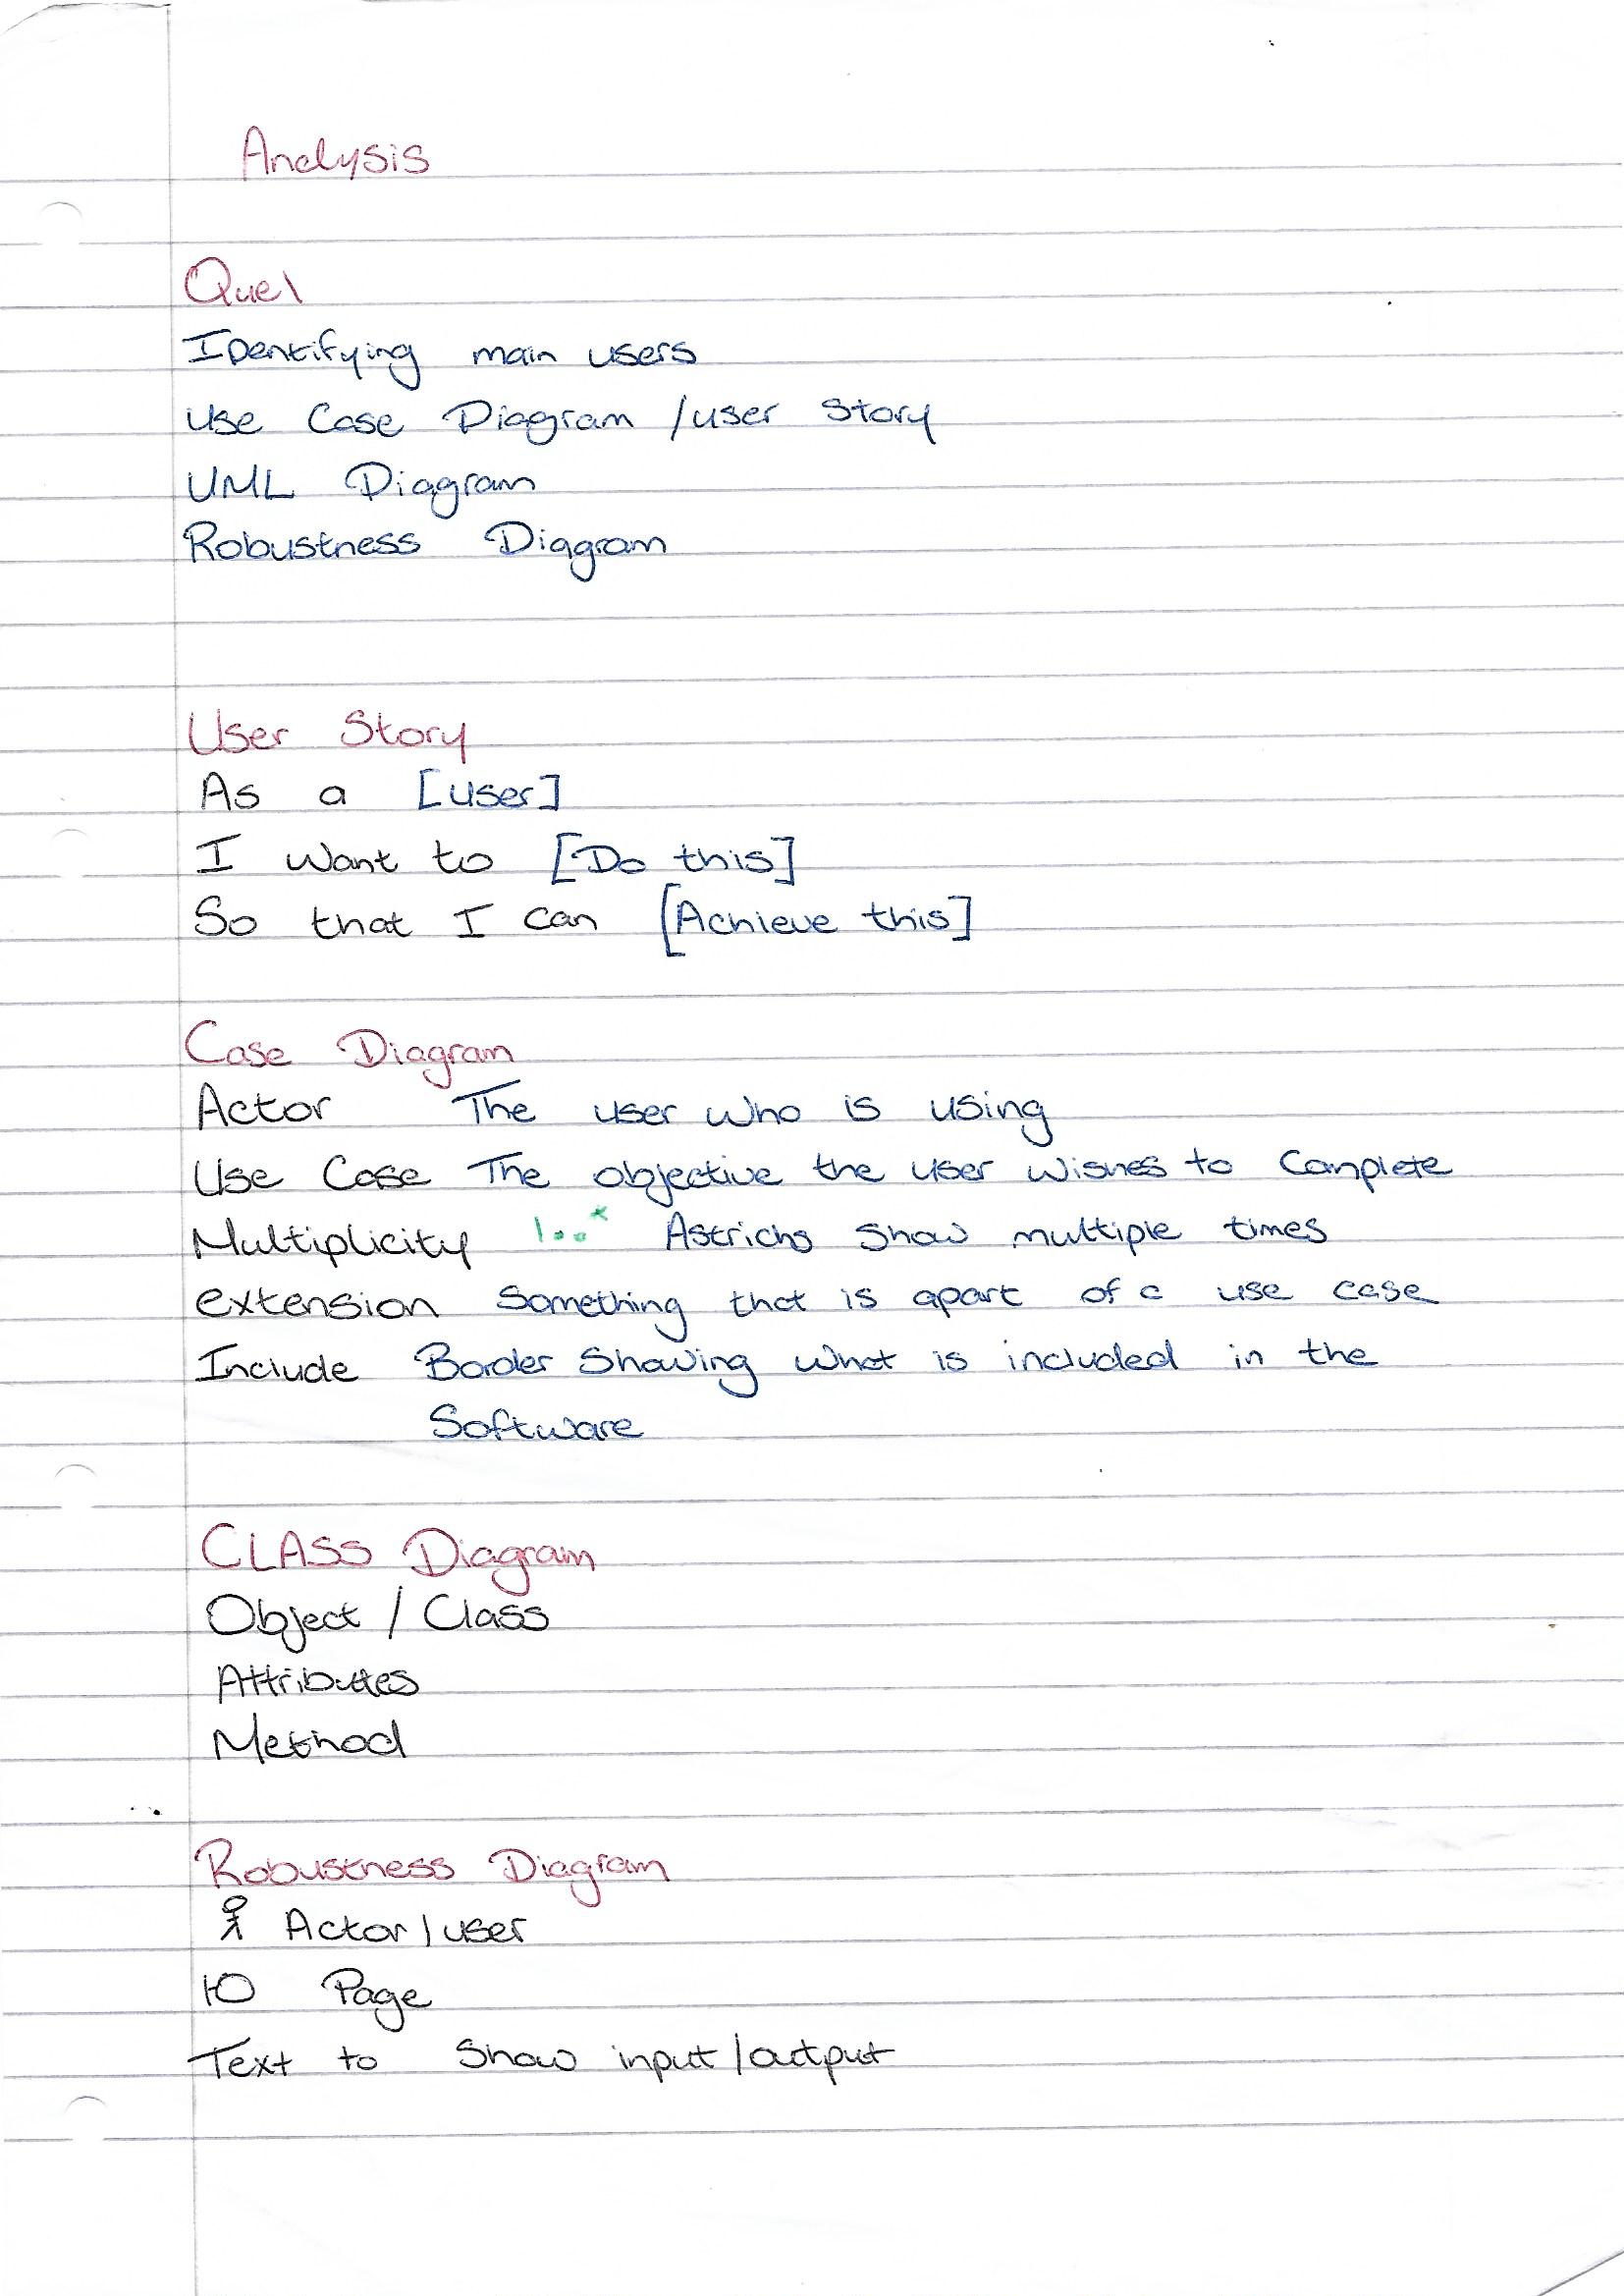 Analysis
Que1
Identifying main users
Use Case Diagram /user story
UML Diagram
Robustness Diagram
User Story
As a [user]
I want to [Do this]
So that I can [Achieve this]
Case Diagram
Actor The user who is using
Use Case The objective the user wishes to complete
Multiplicity 1..* Astrichs show multiple times
extension Something that is apart of a use case
Include Border Showing what is included in the
Software
CLASS Diagram
Object / Class
Attributes
Method
Robustness Diagram
Actor/user
Page
Text to show input/output